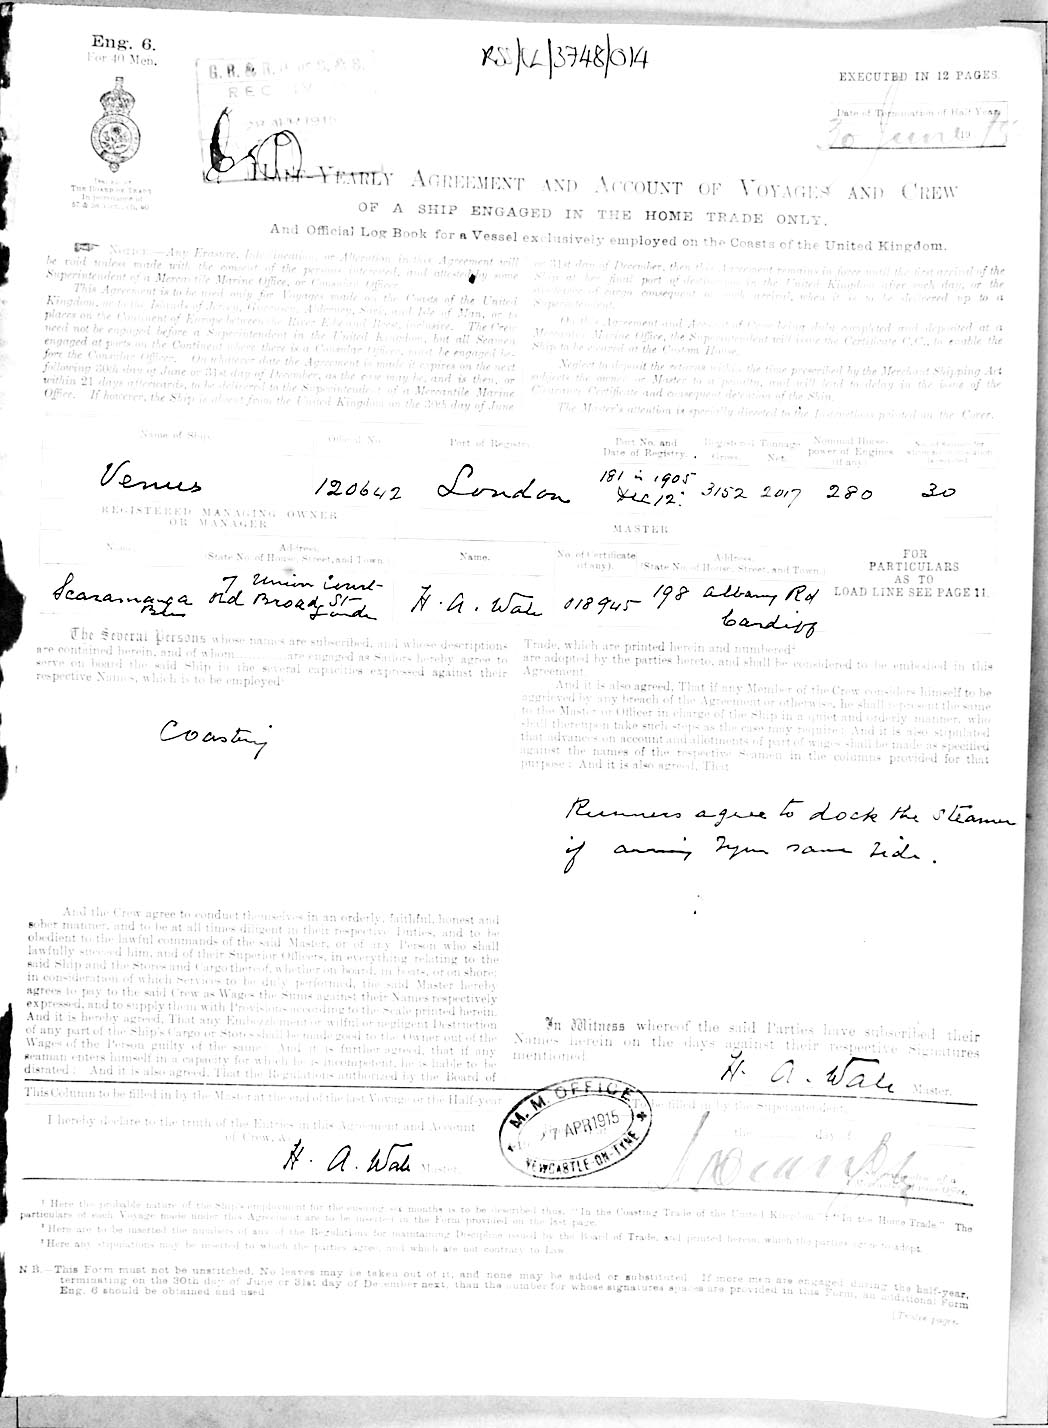 Eng. 6.
For 40 Men.
RSS/CL/3748/014
EXECUTED IN 12 PAGES
G. R. &
RECEIV
1915
Date of Termination of Half Year
30 June 1915
Issued by
THE BOARD OF TRADE
HALF-YEARLY AGREEMENT AND ACCOUNT OF VOYAGES AND CREW
OF A SHIP ENGAGED IN THE HOME TRADE ONLY,
And Official Log Book for a Vessel exclusively employed on the Coasts of the United Kingdom.
NOTICE.—Any Erasure, Interlineation, or Alteration in this Agreement will
be void unless made with the consent of the persons interested, and attested by some
Superintendent of a Mercantile Marine Office, or Consular Officer.
This Agreement is to be used only for Voyages made on the Coasts of the United
Kingdom, or to the Islands of Jersey, Guernsey, Alderney, Sark, and Isle of Man, or to
places on the Continent of Europe between the River Elbe and Brest, inclusive. The Crew
need not be engaged before a Superintendent in the United Kingdom, but all Seamen
engaged at ports on the Continent where there is a Consular Officer, must be engaged be-
fore the Consular Officer. On whatever date the Agreement is made it expires on the next
following 30th day of June or 31st day of December, as the case may be, and is then, or
within 21 days afterwards, to be delivered to the Superintendent of a Mercantile Marine
Office. If however, the Ship is absent from the United Kingdom on the 30th day of June
or 31st day of December, then this Agreement remains in force until the first arrival of the
Ship at her final port of destination in the United Kingdom after such day, or the
discharge of cargo consequent on such arrival, when it is to be delivered up to a
Superintendent.
On this Agreement and Account of Crew being duly completed and deposited at a
Mercantile Marine Office, the Superintendent will issue the Certificate C.C., to enable the
Ship to be cleared at the Custom House.
Neglect to deposit the returns within the time prescribed by the Merchant Shipping Act
subjects the owner or Master to a penalty, and will lead to delay in the issue of the
Clearance Certificate and consequent detention of the Ship.
The Master's attention is specially directed to the Instructions printed on the Cover.
Name of Ship. Official No. Port of Registry. Port No. and Date of Registry. Registered Tonnage Gross. Net. Nominal Horse-power of Engines (if any).
Venus 120642 London 181 in 1905 Dec 12. 3152 2017 280 30
REGISTERED MANAGING OWNER
OR MANAGER
MASTER
Name. Address. (State No. of House, Street, and Town.) Name. No. of Certificate (if any). Address. (State No. of House, Street, and Town.)
FOR
PARTICULARS
AS TO
LOAD LINE SEE PAGE 11.
Scaramanga Bros 7 Union Court Old Broad St London H. A. Wale 018945 198 Albany Rd Cardiff
The Several Persons whose names are subscribed, and whose descriptions
are contained herein, and of whom are engaged as Sailors hereby agree to
serve on board the said Ship in the several capacities expressed against their
respective Names, which is to be employed
Coasting
Trade, which are printed herein and numbered
are adopted by the parties hereto, and shall be considered to be embodied in this
Agreement.
And it is also agreed, That if any Member of the Crew considers himself to be
aggrieved by any breach of the Agreement or otherwise, he shall represent the same
to the Master or Officer in charge of the Ship in a quiet and orderly manner, who
shall thereupon take such steps as the case may require: And it is also stipulated
that advances on account and allotments of part of wages shall be made as specified
against the names of the respective Seamen in the columns provided for that
purpose: And it is also agreed, That
Runners agree to dock the steamer
if arriving Tyne same tide.
And the Crew agree to conduct themselves in an orderly, faithful, honest and
sober manner, and to be at all times diligent in their respective Duties, and to be
obedient to the lawful commands of the said Master, or of any Person who shall
lawfully succeed him, and of their Superior Officers, in everything relating to the
said Ship and the Stores and Cargo thereof, whether on board, in boats, or on shore;
in consideration of which Services to be duly performed, the said Master hereby
agrees to pay to the said Crew as Wages the Sums against their Names respectively
expressed, and to supply them with Provisions according to the Scale printed herein.
And it is hereby agreed, That any Embezzlement or wilful or negligent Destruction
of any part of the Ship's Cargo or Stores shall be made good to the Owner out of the
Wages of the Person guilty of the same: And it is further agreed, that if any
seaman enters himself in a capacity for which he is incompetent, he is liable to be
disrated: And it is also agreed, That the Regulations authorized by the Board of
In Witness whereof the said Parties have subscribed their
Names herein on the days against their respective Signatures
mentioned
H. A. Wale Master.
This Column to be filled in by the Master at the end of the last Voyage or the Half-year
To be filled in by the Superintendent.
I hereby declare to the truth of the Entries in this Agreement and Account
of Crew, &c.
H. A. Wale Master
M. M. OFFICE
7 APR 1915
NEWCASTLE-ON-TYNE
the day of
¹ Here the probable nature of the Ship's employment for the ensuing six months is to be described thus, "In the Coasting Trade of the United Kingdom," "In the Home Trade." The
particulars of each Voyage made under this Agreement are to be inserted in the Form provided on the last page.
² Here are to be inserted the numbers of any of the Regulations for maintaining Discipline issued by the Board of Trade, and printed herein, which the parties agree to adopt.
³ Here any stipulations may be inserted to which the parties agree, and which are not contrary to Law.
N.B.—This Form must not be unstitched. No leaves may be taken out of it, and none may be added or substituted. If more men are engaged during the half-year,
terminating on the 30th day of June or 31st day of December next, than the number for whose signatures spaces are provided in this Form, an additional Form
Eng. 6 should be obtained and used
[Twelve pages.